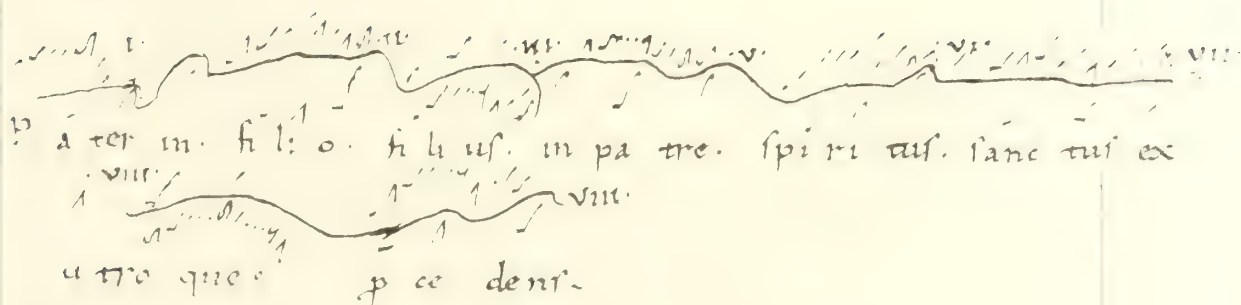 I. II. III. V. VI. VII.
Pa ter in. fi li o. fi li uſ. in pa tre. ſpi ri tuſ. ſanc tuſ ex
VIII. VIII.
u tro que. ꝓ ce denſ.